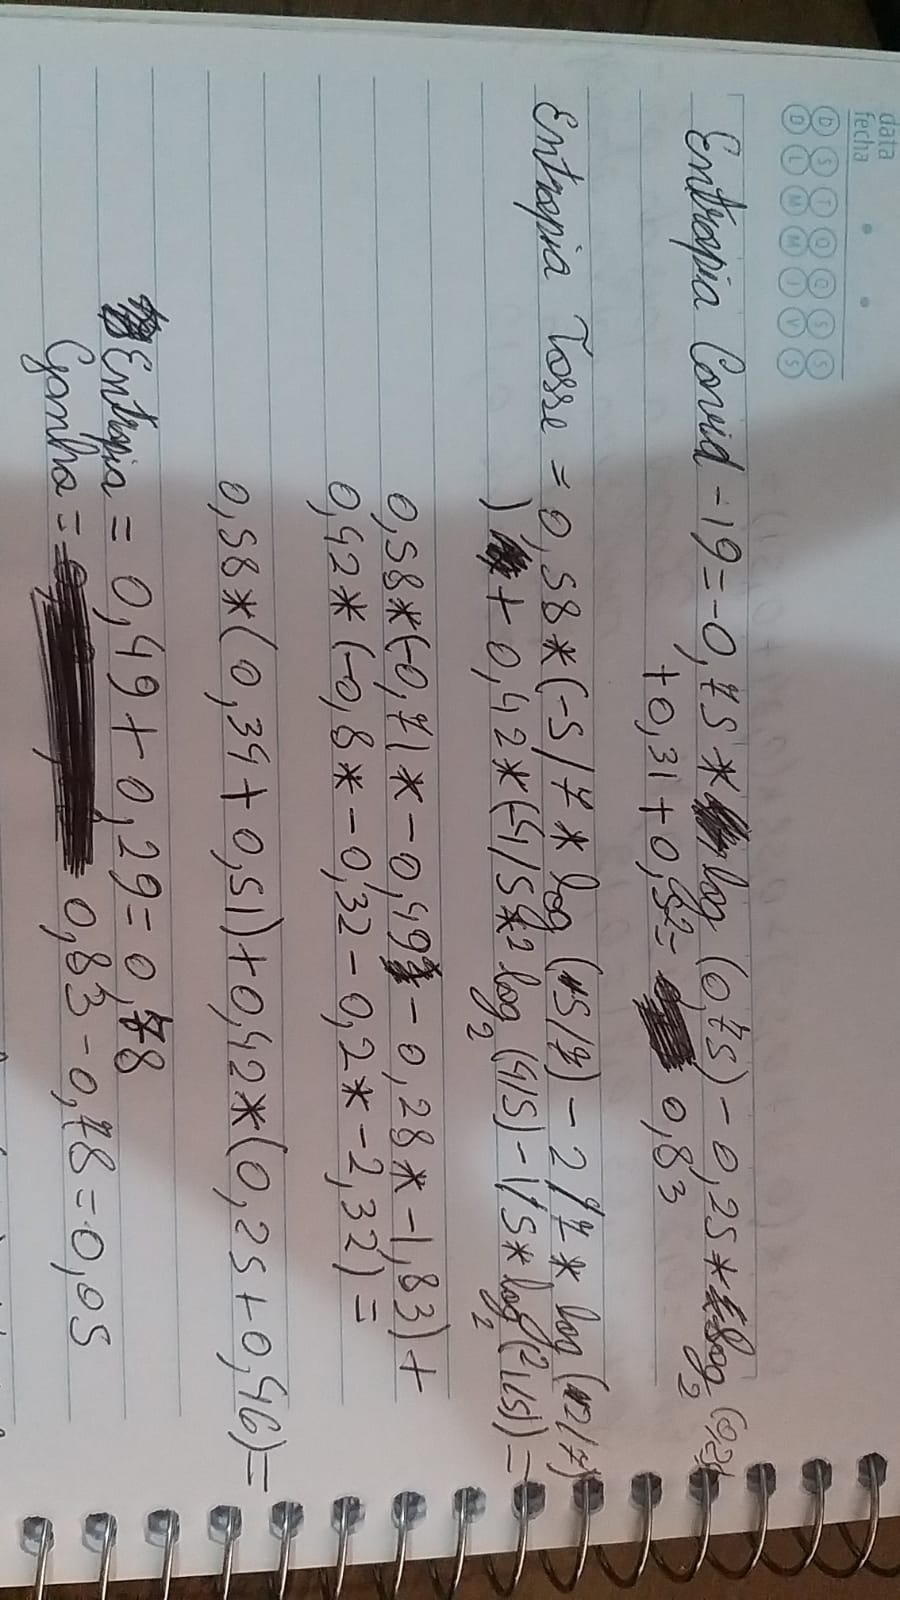 data
fecha
D S T Q Q S S
D L M M J V S
Entropia Covid-19=-0,75* log (0,75)-0,25* log2(0,25)
+0,31+0,52= 0,83
Entropia Tosse = 0,58*(-5/7*log(5/7)-2/7*log(2/7)
)+0,42*(-4/5*2 log2(4/5)-1/5*log2(1/5))=
0,58*(-0,71*-0,49-0,28*-1,83)+
0,42*(-0,8*-0,32-0,2*-2,32)=
0,58*(0,34+0,51)+0,42*(0,25+0,46)=
Entropia = 0,49+0,29=0,78
Ganho = 0,83-0,78=0,05